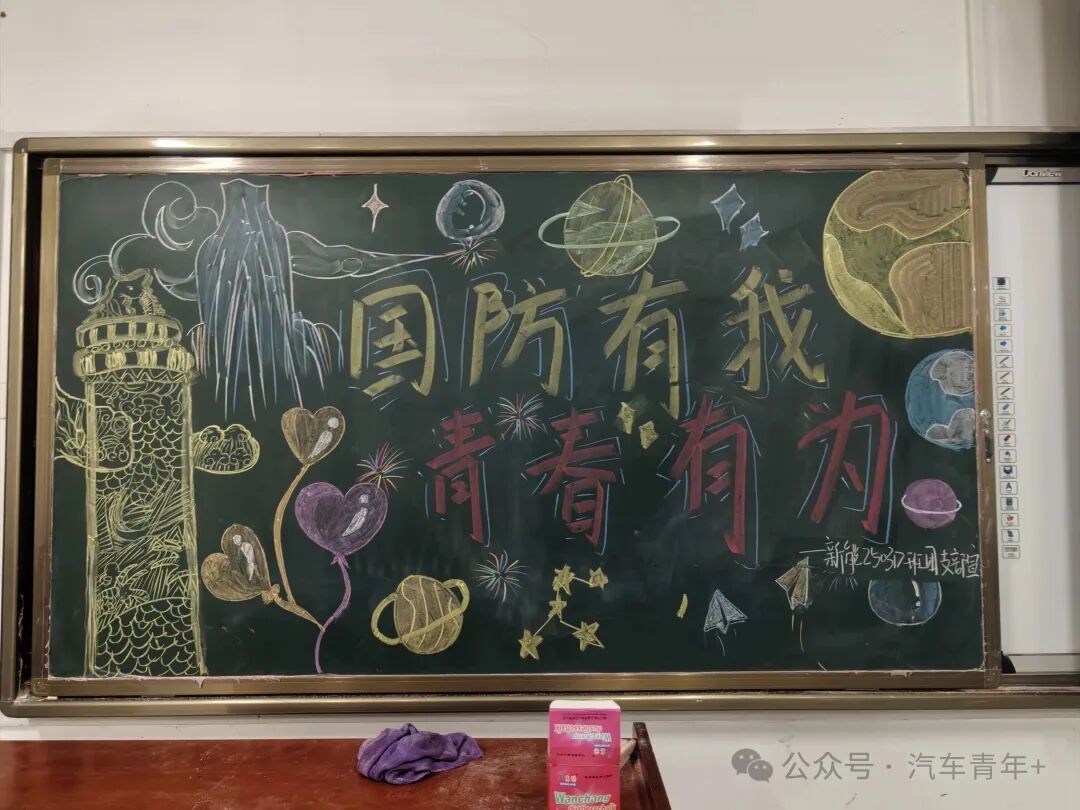 国防有我
青春有为
—新能25037班团支部宣
Donview
Wanchang
dustlesschalk
Wanchang
公众号·汽车青年+